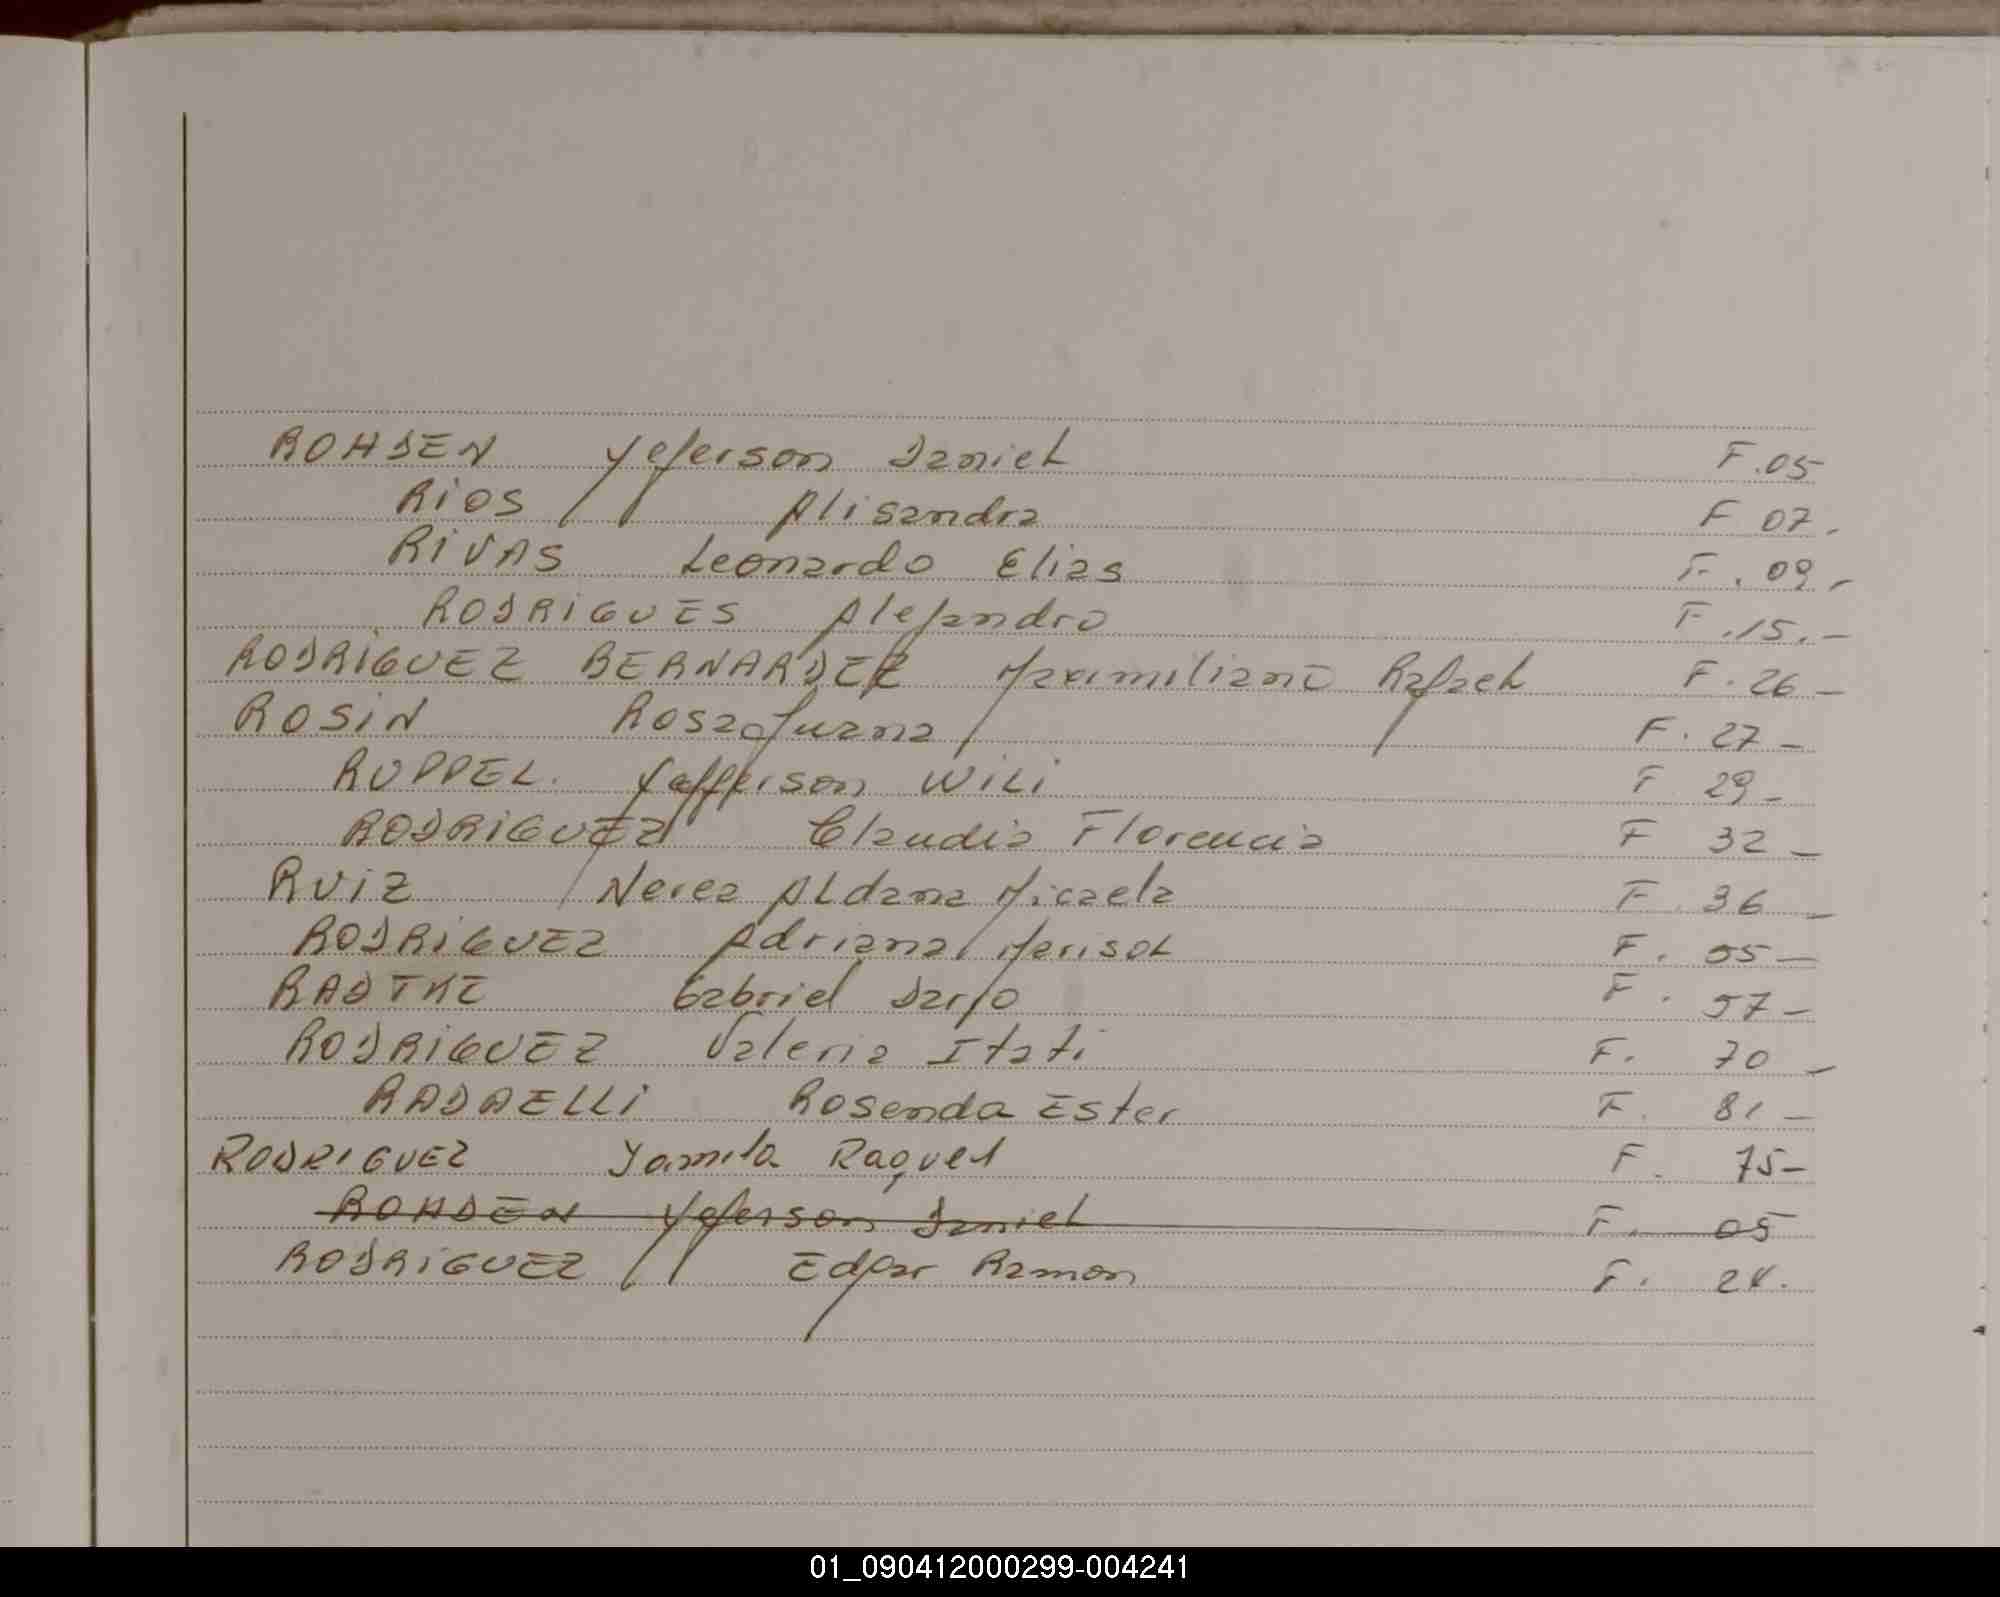 ROHDEN Yeferson Daniel F.05
RIOS Alisandra F 07.
RIVAS Leonardo Elias F. 09-
RODRIGUES Alejandro F.15.-
RODRIGUEZ BERNARDEZ Maximiliano Rafael F. 26-
ROSIN Rosa Juana F. 27-
RUPPEL. Yefferson WILI F 29-
RODRIGUEZ Claudia Florencia F 32-
RUIZ Nerea Aldana Micaela F 36-
RODRIGUEZ Adriana Marisol F. 55-
RADTKE Gabriel Dario F. 57-
RODRIGUEZ Valeria Itati F. 70-
RADAELLI Rosenda Ester F. 81-
RODRIGUEZ Yamila Raquel F. 75-
ROHDEN Yeferson Daniel F. 05
RODRIGUEZ Edgar Ramon F. 24.
01_090412000299-004241